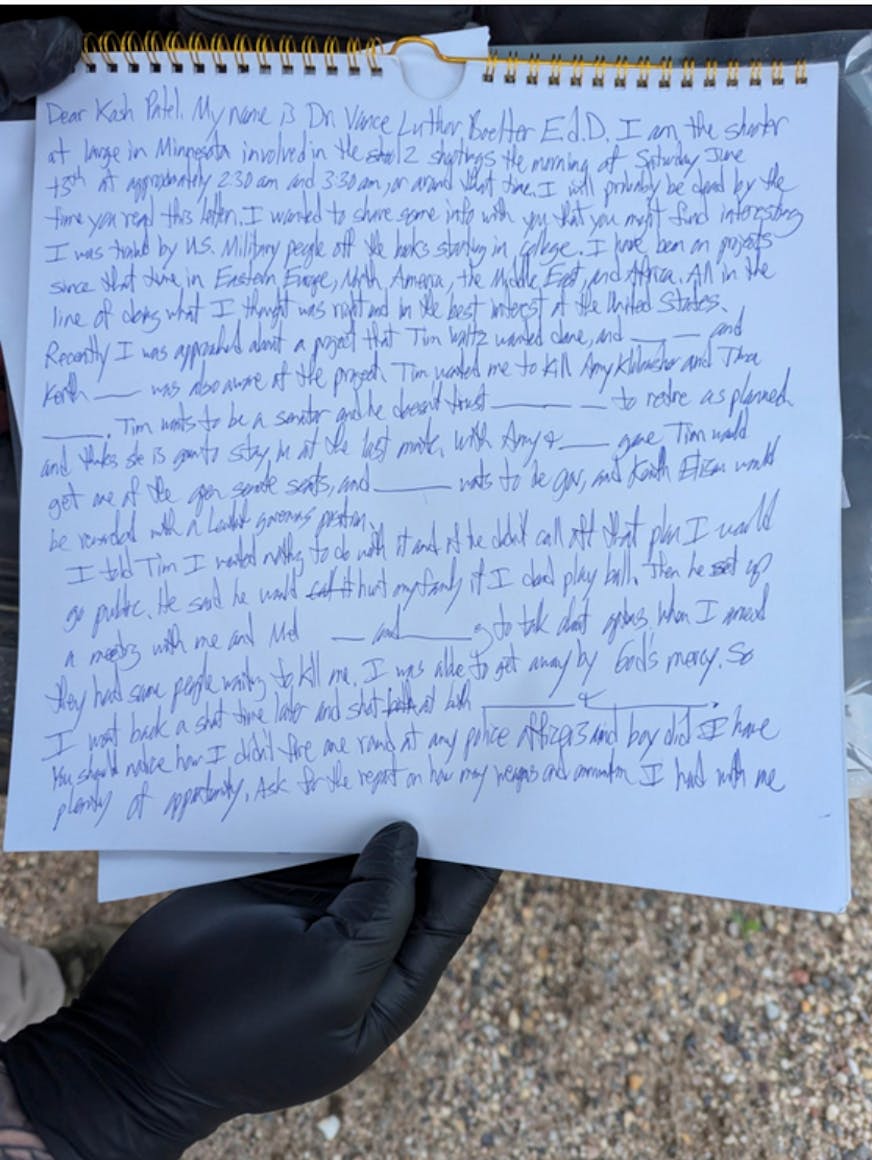 Dear Kash Patel. My name is Dr. Vance Luther Boelter Ed.D. I am the shooter
at large in Minnesota involved in the 2 shootings the morning of Saturday June
13th at approximately 2:30 am and 3:30 am, or around that time. I will probably be dead by the
time you read this letter. I wanted to share some info with you that you might find interesting
I was trained by U.S. Military people off the books starting in college. I have been on projects
since that time in Eastern Europe, North America, the Middle East, and Africa. All in the
line of doing what I thought was right and in the best interest of the United States.
Recently I was approached about a project that Tim Waltz wanted done, and ____ ____ and
Keith ____ was also aware of the project. Tim wanted me to kill Amy Klobuchar and
____ . Tim wants to be a senator and he doesn't trust ____ ____ to retire as planned
and thinks she is gonna stay in at the last minute. With Amy & ____ gone Tim would
get one of the open senate seats, and ____ wants to be gov, and Keith would
be rewarded with a governors position.
I told Tim I wanted nothing to do with it and if he didn't call off that plan I would
go public. He said he would hurt my family if I didn't play ball. Then he set up
a meeting with me and ____ and ____ to talk about options. When I arrived
they had some people waiting to kill me. I was able to get away by God's mercy. So
I went back a short time later and shot at both ____ & ____ .
You should notice how I didn't fire one round at any police officers and boy did I have
plenty of opportunity. Ask for the report on how many weapons and ammunition I had with me